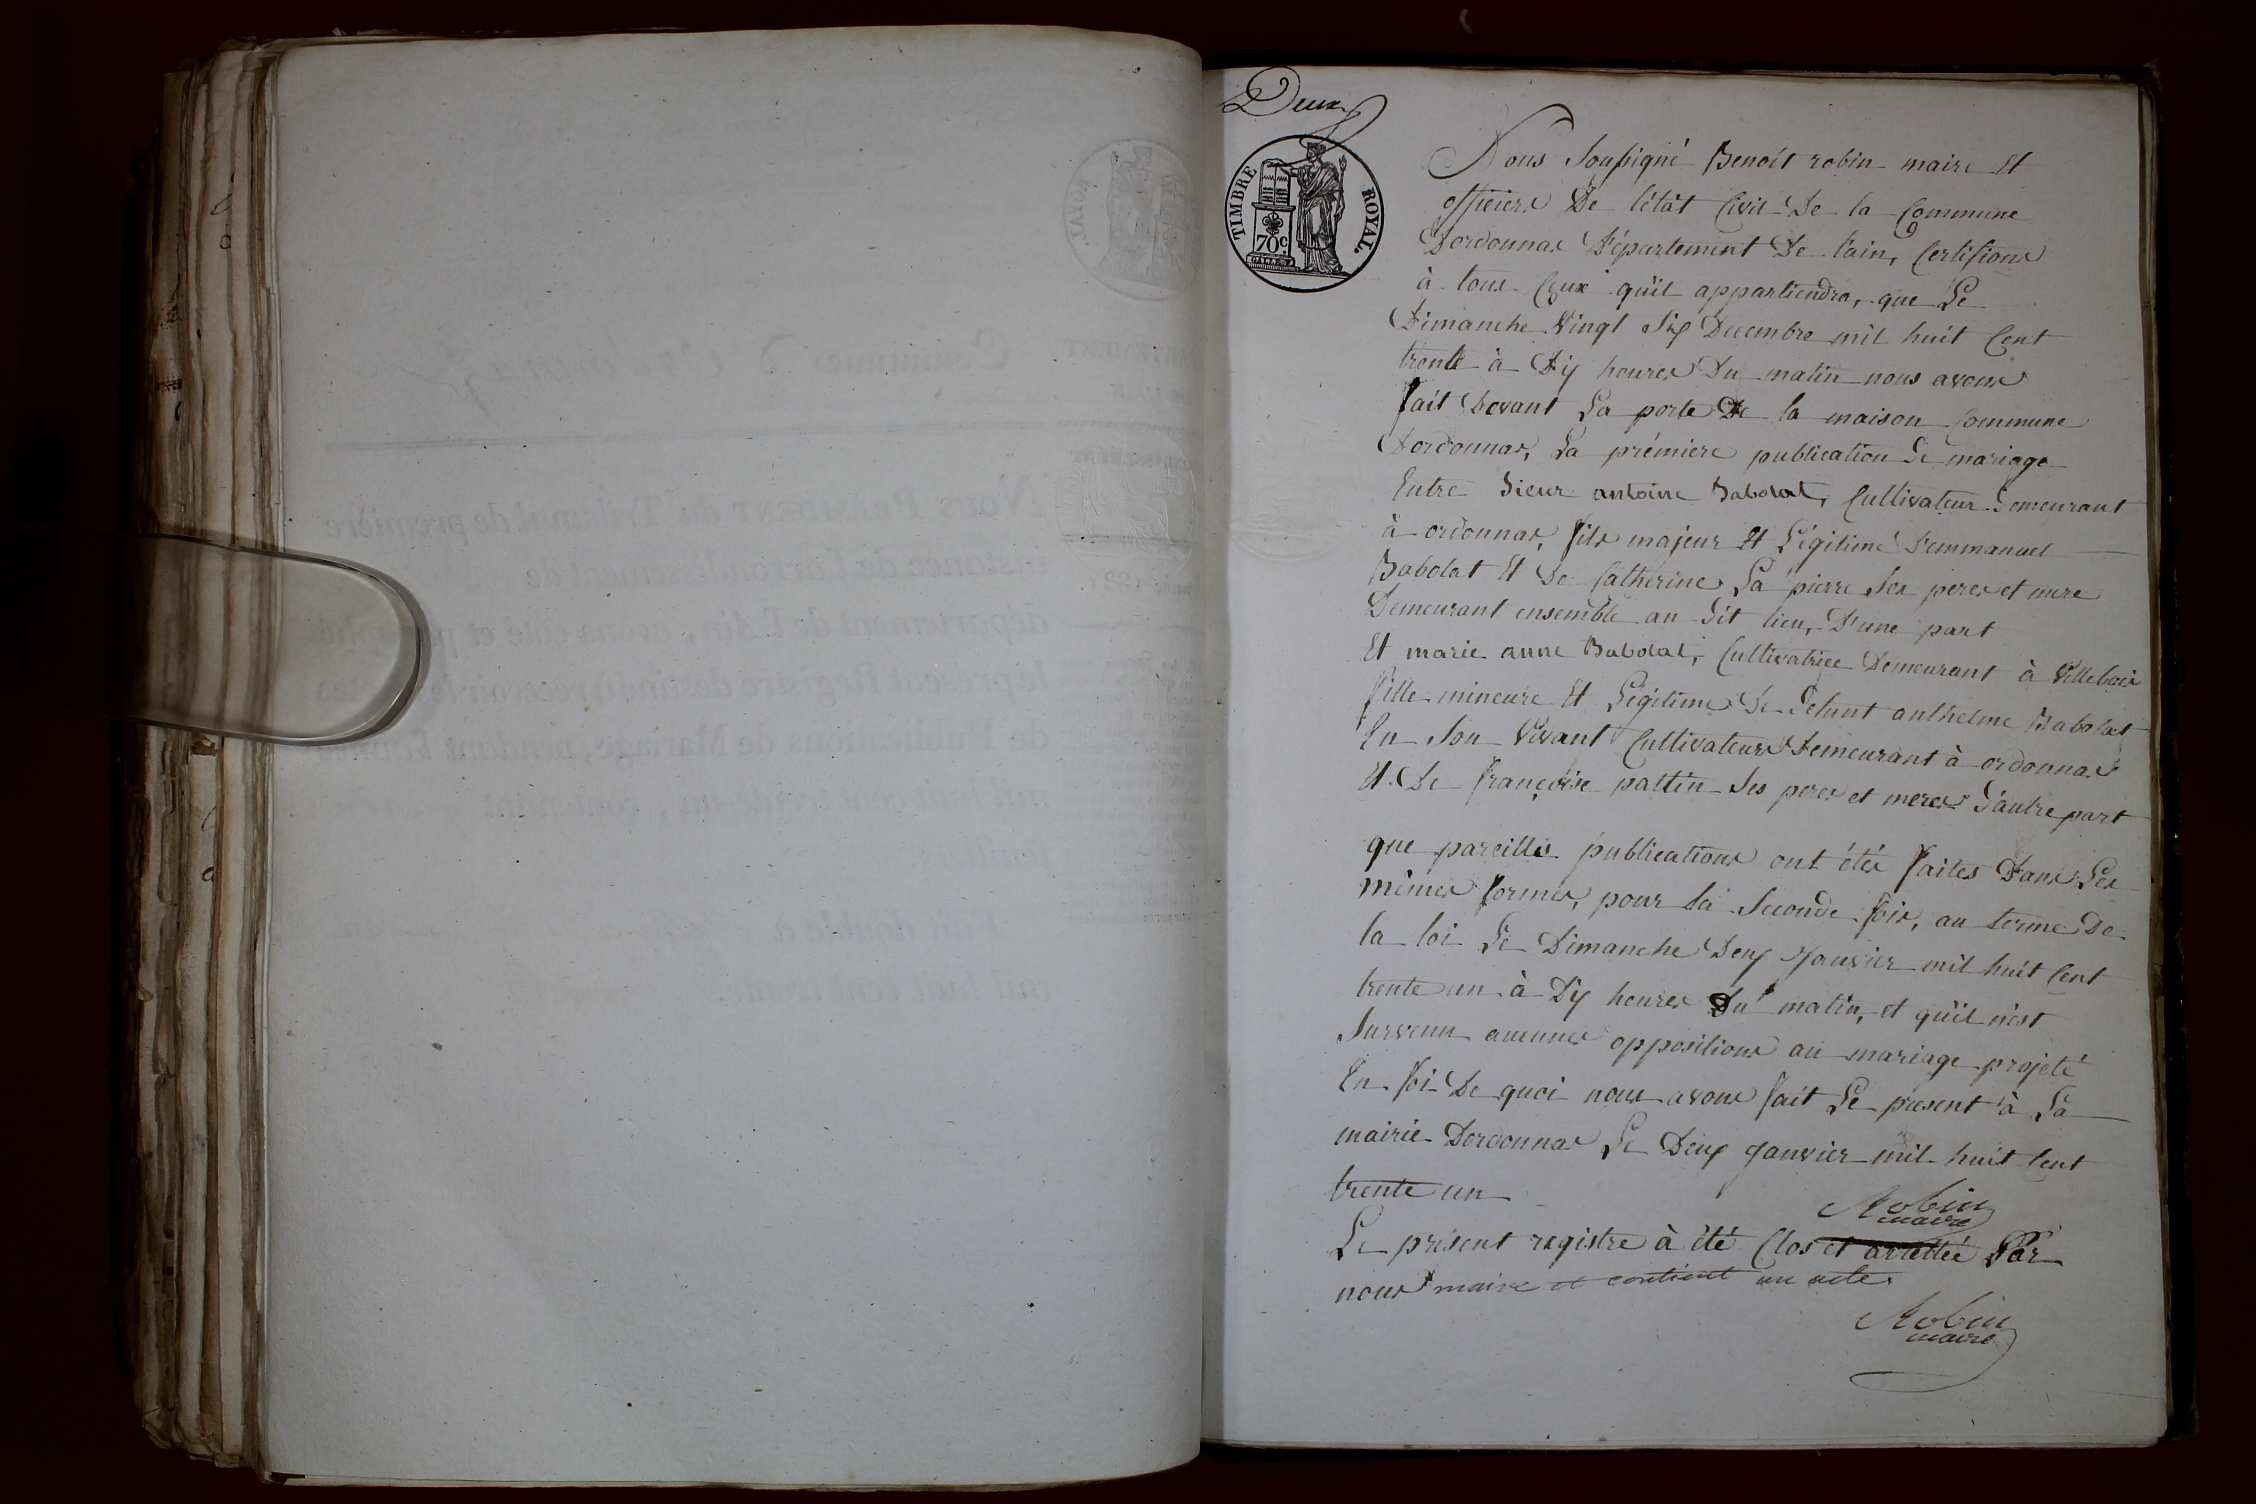 Deux
TIMBRE ROYAL
70c
Nous soussigné Benoit robin maire Et
officiers De l'état Civil De la Commune
Dordonnas Département De l'ain, Certifions
à tous Ceux qu'il appartiendra, que Le
Dimanche Vingt Six Decembre mil huit Cent
trente à Dix heures Du matin nous avons
fait Devant La porte De la maison Commune
Dordonnas, La prémiere publication de mariage
Entre Sieur antoine Babolat, Cultivateur Demeurant
à ordonnas, fils majeur Et Légitime D'emmanuel
Babolat Et De Catherine La pierre Ses peres et mere
Demeurant ensemble au dit lieu, D'une part
Et marie anne Babolat, Cultivatrice Demeurant à Villebois
fille mineure Et Légitime De Defunt anthelme Babolat
En Son Vivant Cultivateurs Demeurant à ordonnas
Et De françoise pattin Ses peres et meres D'autre part
que pareilles publications ont étés faites Dans Les
mêmes formes, pour la Seconde fois, au terme De
la loi Le Dimanche Deux Janvier mil huit Cent
trente un à Dix heures Du matin, et qu'il n'est
Survenu aucunes oppositions au mariage projeté
En foi De quoi nous avons fait Le présent à La
mairie Dordonnas Le Deux Janvier mil huit Cent
trente un
Robin
maire
Le présent registre à été Clos et arrettée Par
nous maire et contient un acte.
Robin
maire
Commune d'
Nous PRÉSIDENT du Tribunal de première
instance de l'arrondissement de
département de l'Ain, avons coté et paraphé
le présent Registre destiné à recevoir les
de Publications de Mariage, pendant l'année
mil huit cent trente-un, contenant
Fait double à
mil huit cent trente.